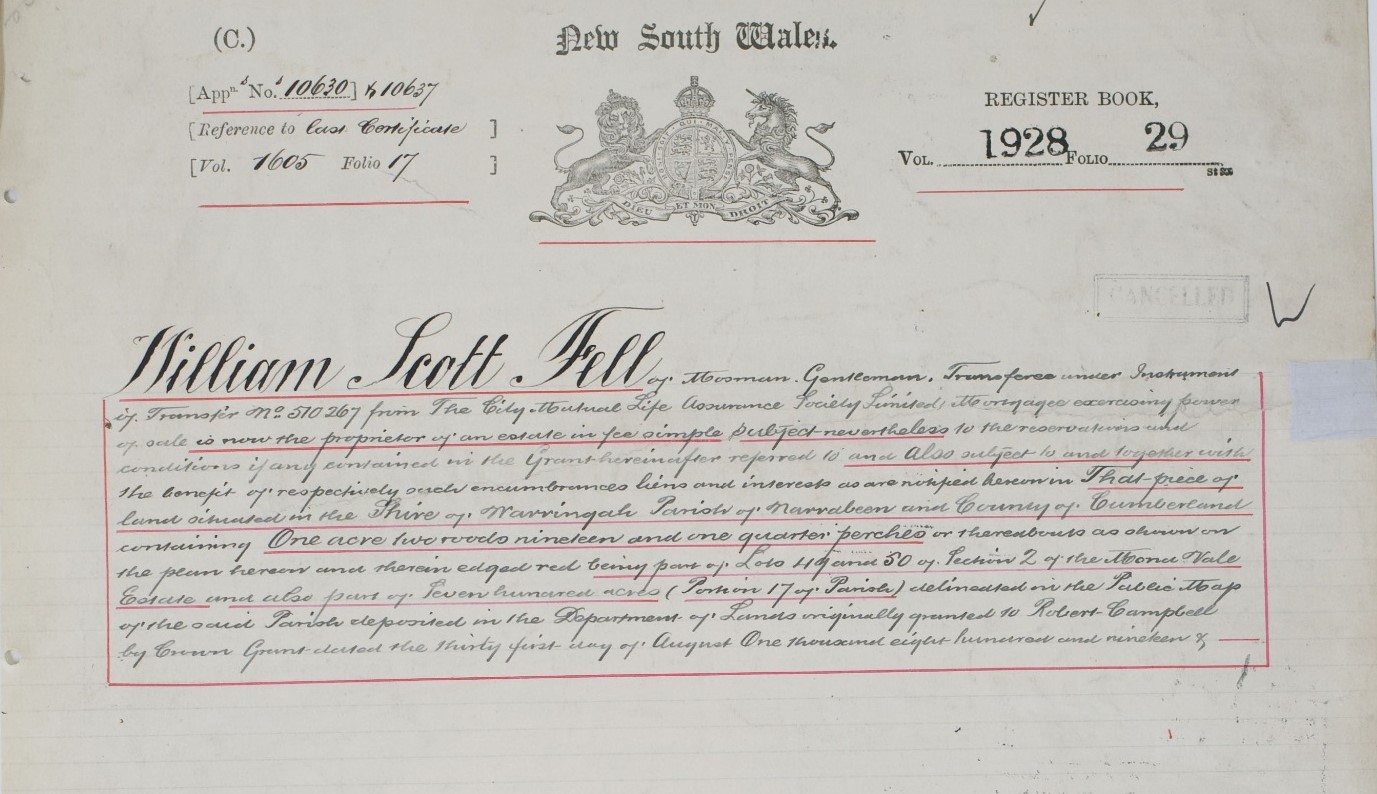 (C.)
New South Wales.
[Appns. No.s 10630] & 10637
[Reference to Last Certificate ]
[Vol. 1605 Folio 17 ]
REGISTER BOOK,
VOL. 1928 FOLIO 29
DIEU ET MON DROIT
CANCELLED
William Scott Fell of Mosman. Gentleman. Transferee under Instrument
of Transfer No. 510267 from The City Mutual Life Assurance Society Limited, Mortgagee exercising power
of sale is now the proprietor of an estate in fee simple subject nevertheless to the reservations and
conditions if any contained in the Grant hereinafter referred to and Also subject to and together with
the benefit of respectively such encumbrances liens and interests as are notified hereon in That piece of
land situated in the Shire of Warringah Parish of Narrabeen and County of Cumberland
containing One acre two roods nineteen and one quarter perches or thereabouts as shown on
the plan hereon and therein edged red being part of Lots 49 and 50 of Section 2 of the Mona Vale
Estate and also part of Seven hundred acres (Portion 17 of Parish) delineated in the Public Map
of the said Parish deposited in the Department of Lands originally granted to Robert Campbell
by Crown Grant dated the thirty first day of August One thousand eight hundred and nineteen &